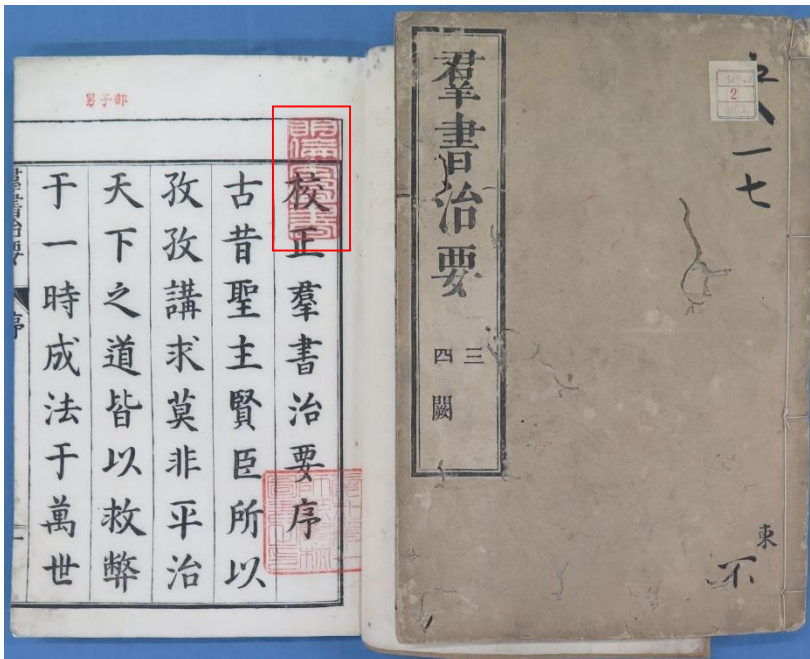 羣書治要
三
四闕
一七
2
東
不
男子部
校正羣書治要序
古昔聖主賢臣所以
孜孜講求莫非平治
天下之道皆以救弊
于一時成法于萬世
羣書治要 序